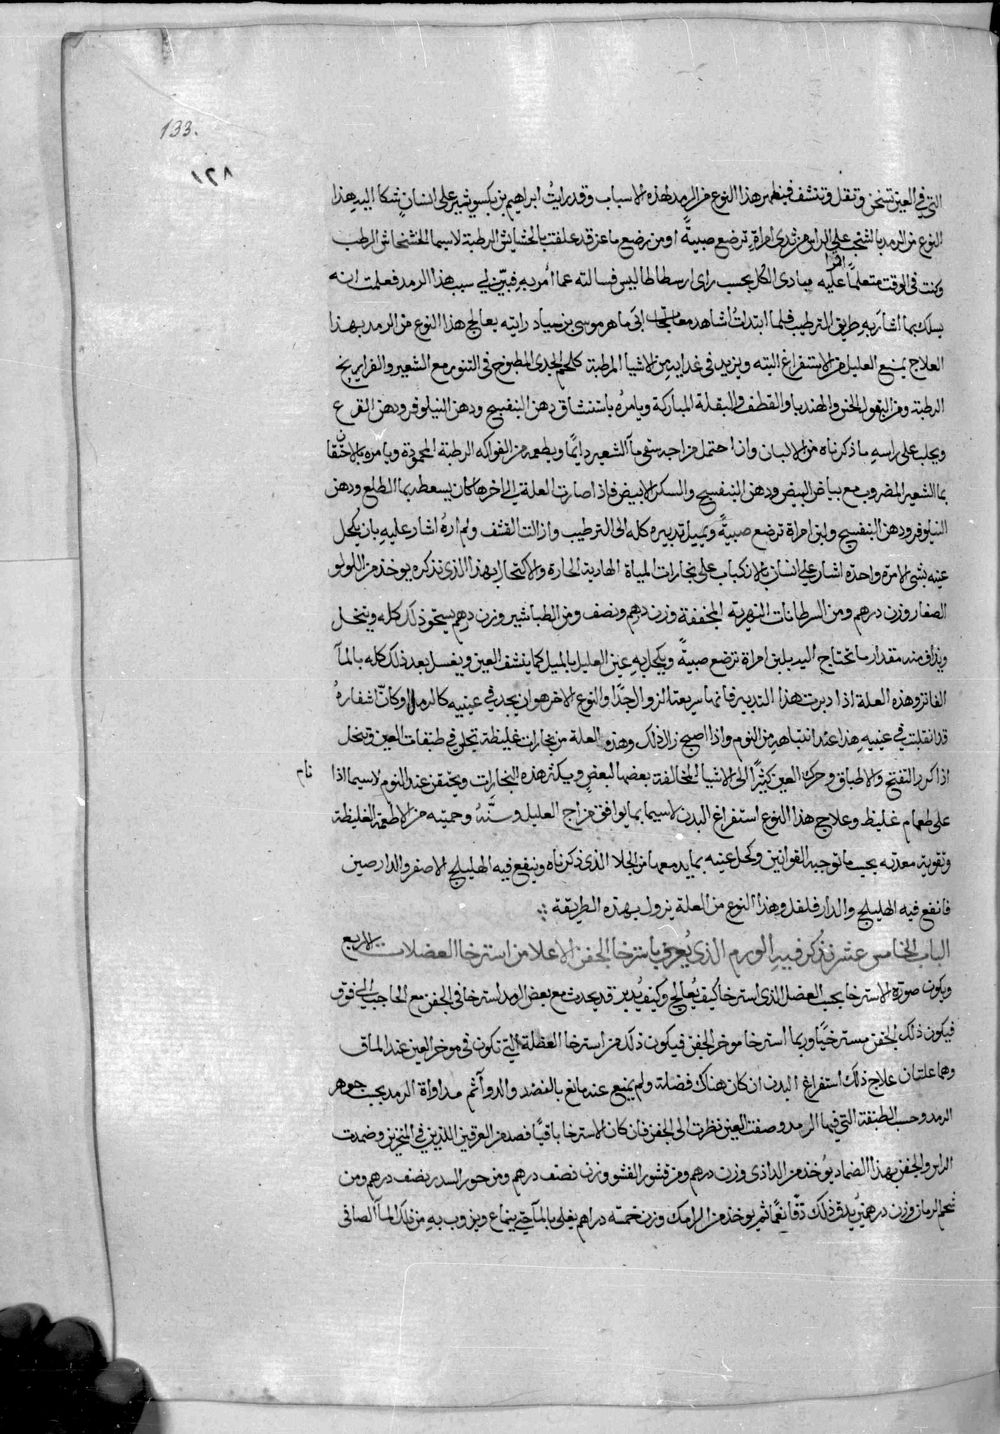 133.
١٢٨
التي في العين تسخن وتثقل وتنشف فيظهر هذا النوع من الرمد لهذه الاسباب وقد رايت ابراهيم بن بكسو يشير على انسان شكا اليه هذا
النوع من الرمد بالشخب على الراس من ثدى امراة ترضع صبية او من رضيع ماعز قد علفت بالحشايش الرطبة لاسيما الخشخاش الرطب
وكنت في الوقت متعلما اقرا عليه مبادى الكل بحسب راى ارسطاطاليس فسالته عما امر به فبين لي سبب هذا الرمد فعلمت انه
يسلك بما اشار به طريق الترطيب فلما ابتدات اشاهد معالجات ابي ماهر موسى بن سيار رايته يعالج هذا النوع من الرمد بهذا
العلاج يمنع العليل من الاستفراغ البته ويزيد في غذايه من الاشيا المرطبة كلحم الجدى المطبوخ في التنور مع الشعير والفراريج
الرطبة ومن البقول الخس والهندبا والقطف والبقلة المباركة ويامره باستنشاق دهن البنفسج ودهن النيلوفر ودهن القرع
ويحلب على راسه ما ذكرناه من الالبان واذا احتمل مزاجه سقى ما الشعير دايما ويطعمه من الفواكه الرطبة المحمودة ويامره بالاحتقان
بما الشعير المضروب مع بياض البيض ودهن البنفسج والسكر الابيض فاذا صارت العلة في اخرها كان يسعطه بما الطلع ودهن
النيلوفر ودهن البنفسج ولبن امراة ترضع صبية ويميل تدبيره كله الى الترطيب وازالت القشف ولم اره اشار عليه بان يكحل
عينه بشي الا مرة واحدة اشار على انسان بالانكباب على بخارات المياة الهادية الحارة والاكتحال بهذا الذي نذكره يوخذ من اللولو
الصغار وزن درهم ومن السرطانات النهرية المجففة وزن درهم ونصف ومن الطباشير وزن درهم يسحق ذلك كله وينخل
ويذاف منه مقدار ما تحتاج اليه بلبن امراة ترضع صبية ويكحل به عين العليل بالميل كما ينشف العين ويغسل بعد ذلك كله بالمآ
الفاتر وهذه العلة اذا دبرت هذا التدبير فانها سريعة الزوال جدا والنوع الاخر هو ان يجد في عينيه كالرمل او كان اشفاره
قد انقلبت في عينيه هذا عند انتباهه من النوم واذا اصبح زال ذلك وهذه العلة من بخارات غليظة تحلى في طبقات العين وتنحل
اذا كرر التفتح والاطباق وحرك العين كثيرا الى الاشيا المخالفة بعضها لبعض ويكثر هذه البخارات وتحتقن عند النوم لاسيما اذا نام
على طعام غليظ وعلاج هذا النوع استفراغ البدن لاسيما بما يوافق مزاج العليل وسنه وحميته من الاطعمة الغليظة
وتقوية معدته بحسب ما توجبه القوانين وكحل عينه بما يدمعها من الجلا الذى ذكرناه وينفع فيه الهليلج الاصفر والدارصين
فانفع فيه الهليلج والدارفلفل وهذا النوع من العلة يزول بهذه الطريقة
الباب الخامس عشر نذكر فيه الورم الذى يعرف باسترخا الجفن الاعلا من استرخا العضلات الاربع
ويكون صورة الاسترخا بحسب العضل الذى استرخا كيف يعالج وكيف يدبر قد يحدث مع بعض الرمد استرخا في الجفن مع الحاجب الى فوق
فيكون ذلك الجفن مسترخيا وربما استرخا موخر الجفن فيكون ذلك من استرخا العظلة التي تكون في موخر العين عند الماق
وهما علتان علاج ذلك استفراغ البدن ان كان هناك فضلة ولم يمنع عنه مانع بالفصد والدوا ثم مداواة الرمد بحسب جوهر
الرمد وحسب الطبقة التي فيها الرمد وصفت العين نظرت الى الجفن فان كان الاسترخا باقيا فصد من العرقين اللذين في المنخرين وضمدت
الراس والجفن بهذا الضماد يوخذ من الداذى وزن درهم ومن قشور الفشو وزن نصف درهم ومن حور السدر نصف درهم ومن
شحم الرمان وزن درهمين يدق ذلك دقا نعما ثم يوخذ من الرامك وزن خمسة دراهم يغلى بالمآ حتى ينماع ويذوب به من تلك المآ الصافى